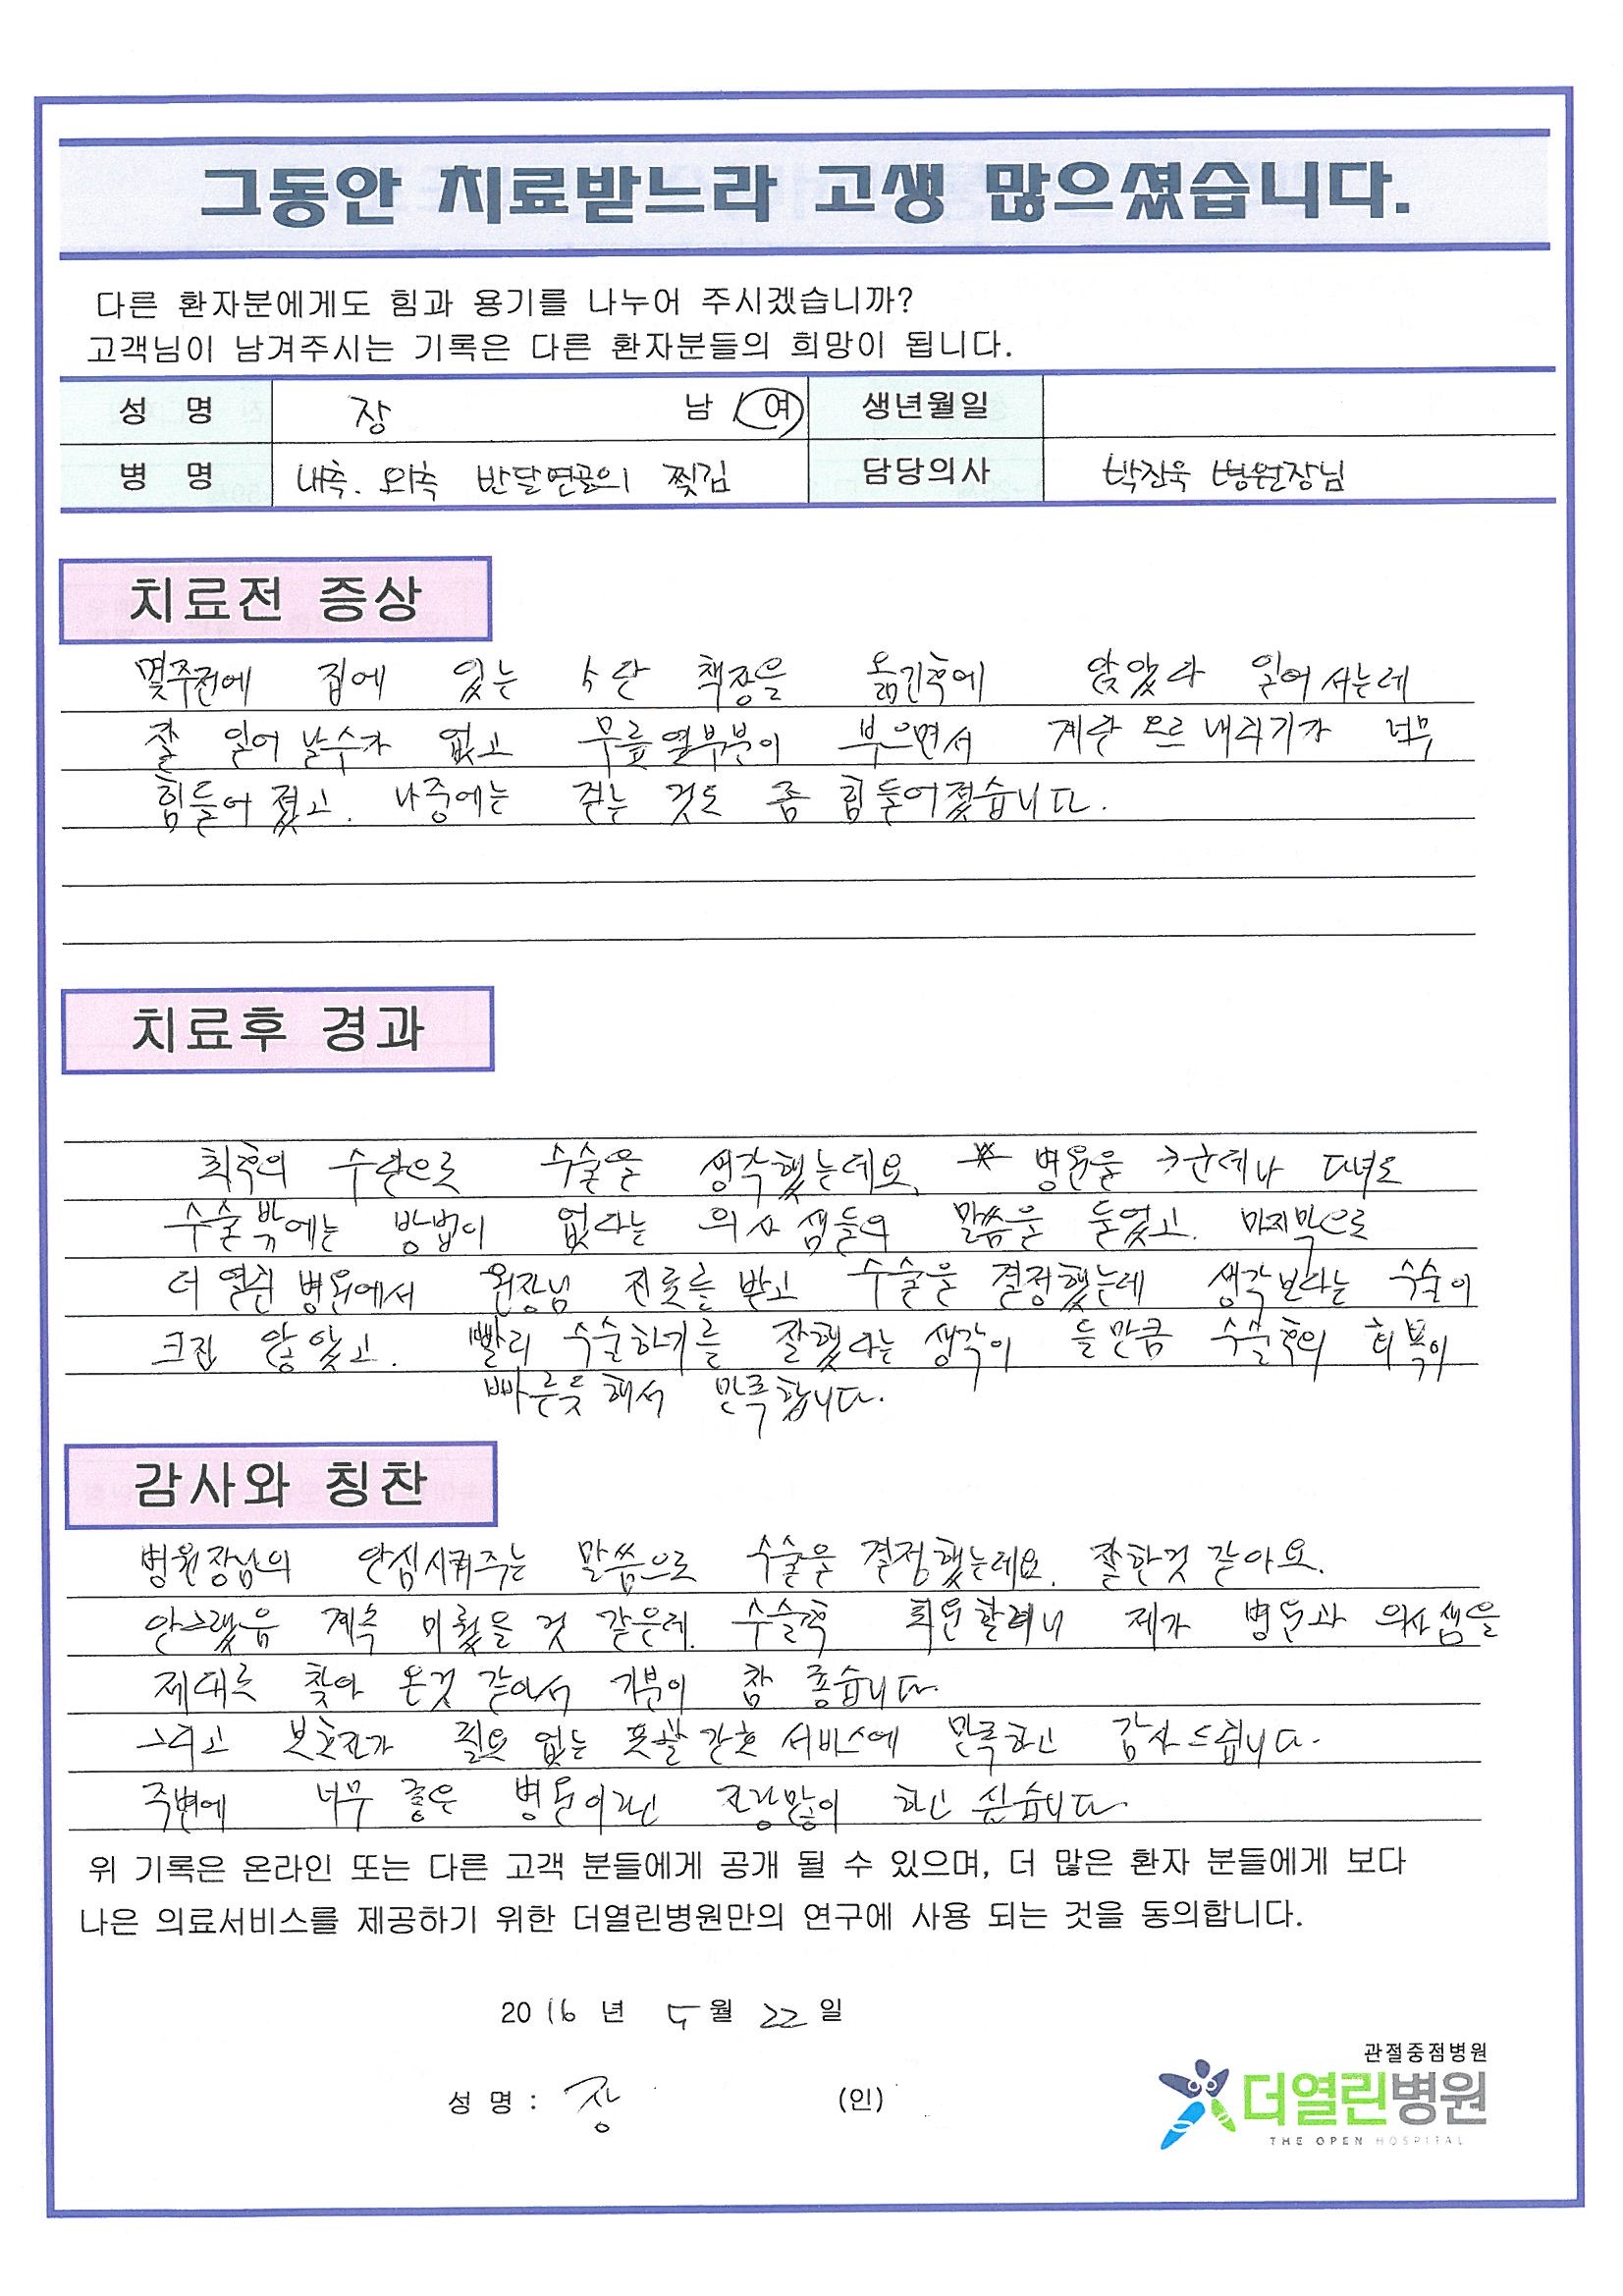 그동안 치료받느라 고생 많으셨습니다.
다른 환자분에게도 힘과 용기를 나누어 주시겠습니까?
고객님이 남겨주시는 기록은 다른 환자분들의 희망이 됩니다.
성 명 장 남 여 생년월일
병 명 내측. 외측 반달연골의 찢김 담당의사 박진욱 병원장님
치료전 증상
몇주전에 집에 있는 5단 책장을 옮긴후에 앉았다 일어서는데
잘 일어날수가 없고 무릎옆부분이 부으면서 계단 오르내리기가 너무
힘들어졌고. 나중에는 걷는 것도 좀 힘들어졌습니다.
치료후 경과
최후의 수단으로 수술을 생각했는데요, 병원을 3군데나 다녀도
수술밖에는 방법이 없다는 의사 샘들의 말씀을 들었고. 마지막으로
더 열린 병원에서 원장님 진료를 받고 수술을 결정했는데 생각보다는 수술이
크진 않았고. 빨리 수술하기를 잘했다는 생각이 들만큼 수술후의 회복이
빠른듯해서 만족합니다.
감사와 칭찬
병원장님의 안심시켜주는 말씀으로 수술을 결정했는데요. 잘한것 같아요.
안그랬음 계속 미뤘을 것 같은데. 수술후 퇴원할려니 제가 병원과 의사샘을
제대로 찾아 온것 같아서 기분이 참 좋습니다.
그리고 보호자가 필요 없는 포괄간호 서비스에 만족하고 감사드립니다.
주변에 너무 좋은 병원이라고 자랑많이 하고 싶습니다.
위 기록은 온라인 또는 다른 고객 분들에게 공개 될 수 있으며, 더 많은 환자 분들에게 보다
나은 의료서비스를 제공하기 위한 더열린병원만의 연구에 사용 되는 것을 동의합니다.
2016 년 5월 22일
성 명 : 장 (인)
관절중점병원
더열린병원
THE OPEN HOSPITAL